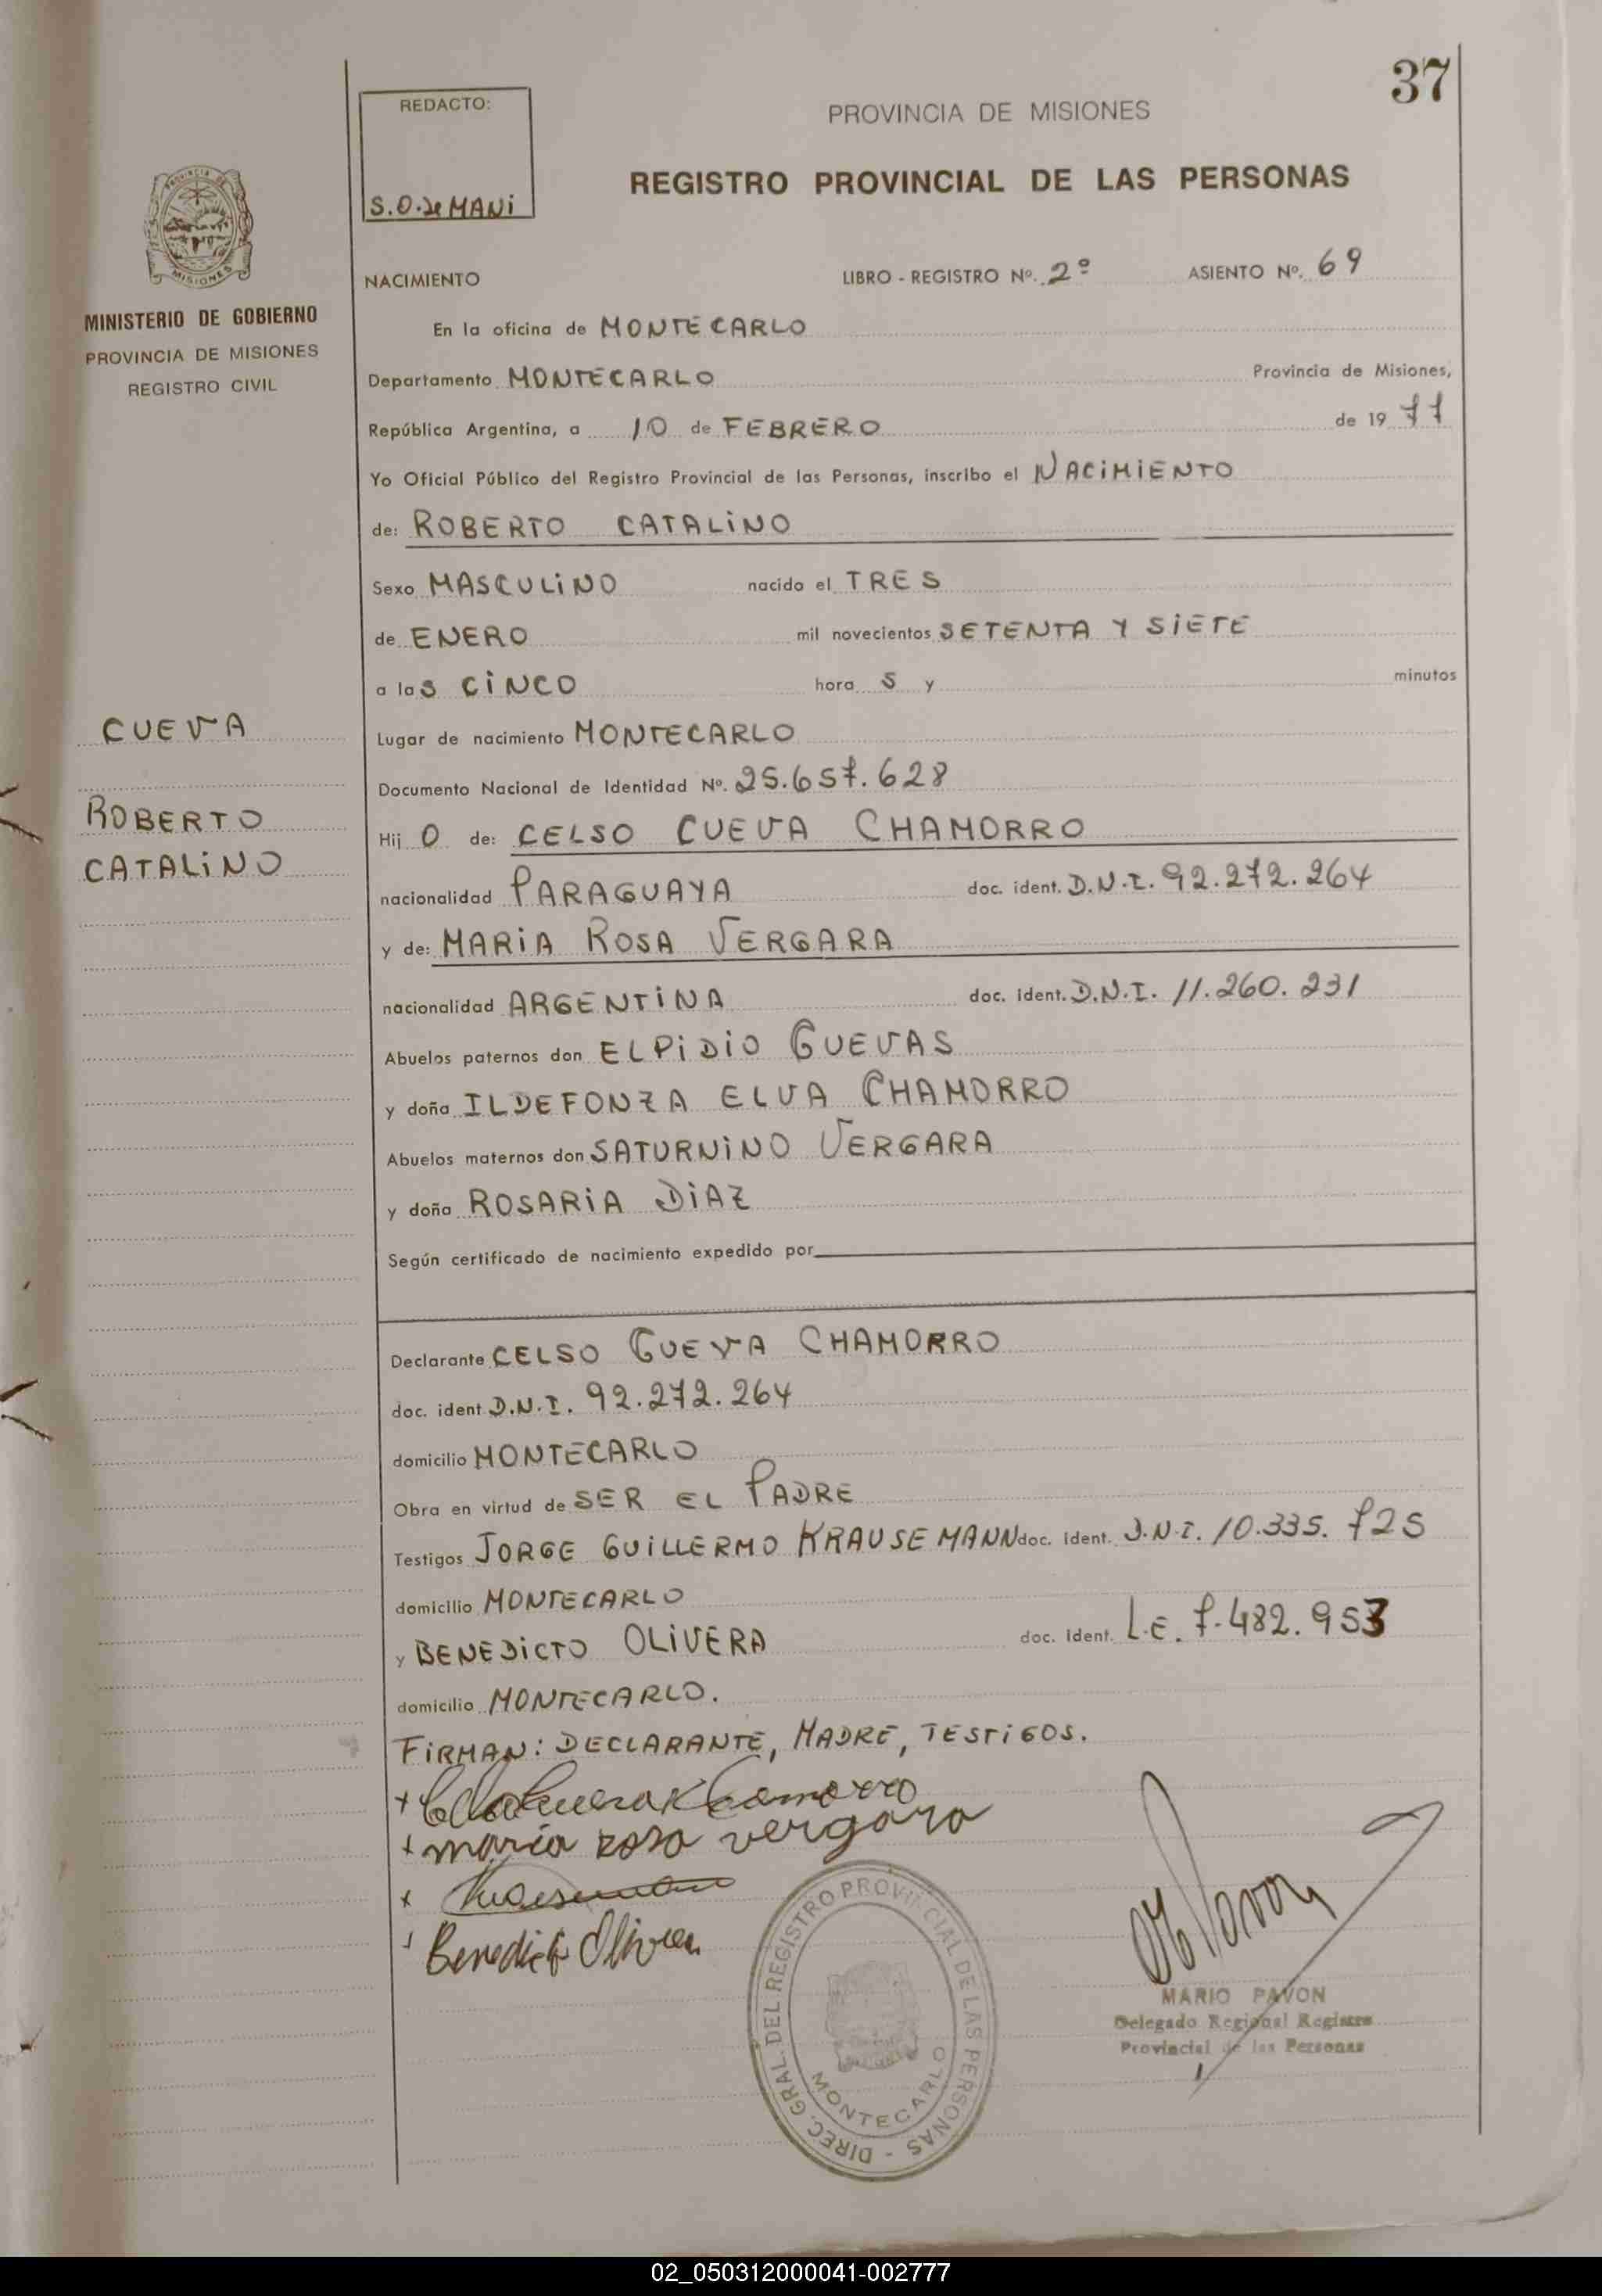 37
REDACTO:
S.O. de MANI
PROVINCIA DE MISIONES
REGISTRO PROVINCIAL DE LAS PERSONAS
PROVINCIA DE
MISIONES
MINISTERIO DE GOBIERNO
PROVINCIA DE MISIONES
REGISTRO CIVIL
NACIMIENTO LIBRO - REGISTRO Nº. 2º ASIENTO Nº. 69
En la oficina de MONTECARLO
Departamento MONTECARLO Provincia de Misiones,
República Argentina, a 10 de FEBRERO de 19 77
Yo Oficial Público del Registro Provincial de las Personas, inscribo el NACIMIENTO
de: ROBERTO CATALINO
Sexo MASCULINO nacido el TRES
de ENERO mil novecientos SETENTA Y SIETE
a las CINCO hora S y minutos
CUEVA
ROBERTO
CATALINO
Lugar de nacimiento MONTECARLO
Documento Nacional de Identidad Nº. 25.657.628
Hij O de: CELSO CUEVA CHAMORRO
nacionalidad PARAGUAYA doc. ident. D.N.I. 92.272.264
y de: MARIA ROSA VERGARA
nacionalidad ARGENTINA doc. ident. D.N.I. 11.260.231
Abuelos paternos don ELPIDIO CUEVAS
y doña ILDEFONZA ELVA CHAMORRO
Abuelos maternos don SATURNINO VERGARA
y doña ROSARIA DIAZ
Según certificado de nacimiento expedido por
Declarante CELSO CUEVA CHAMORRO
doc. ident D.N.I. 92.272.264
domicilio MONTECARLO
Obra en virtud de SER EL PADRE
Testigos JORGE GUILLERMO KRAUSEMANN doc. ident. D.N.I. 10.335.725
domicilio MONTECARLO
y BENEDICTO OLIVERA doc. ident. L.E. 7.482.953
domicilio MONTECARLO.
FIRMAN: DECLARANTE, MADRE, TESTIGOS.
+ Celso Cueva Chamorro
+ maria rosa vergara
x
Benedicto Olivera
DIREC. GRAL. DEL REGISTRO PROVINCIAL DE LAS PERSONAS -
MONTECARLO
MARIO PAVON
Delegado Regional Registro
Provincial de las Personas
02_050312000041-002777